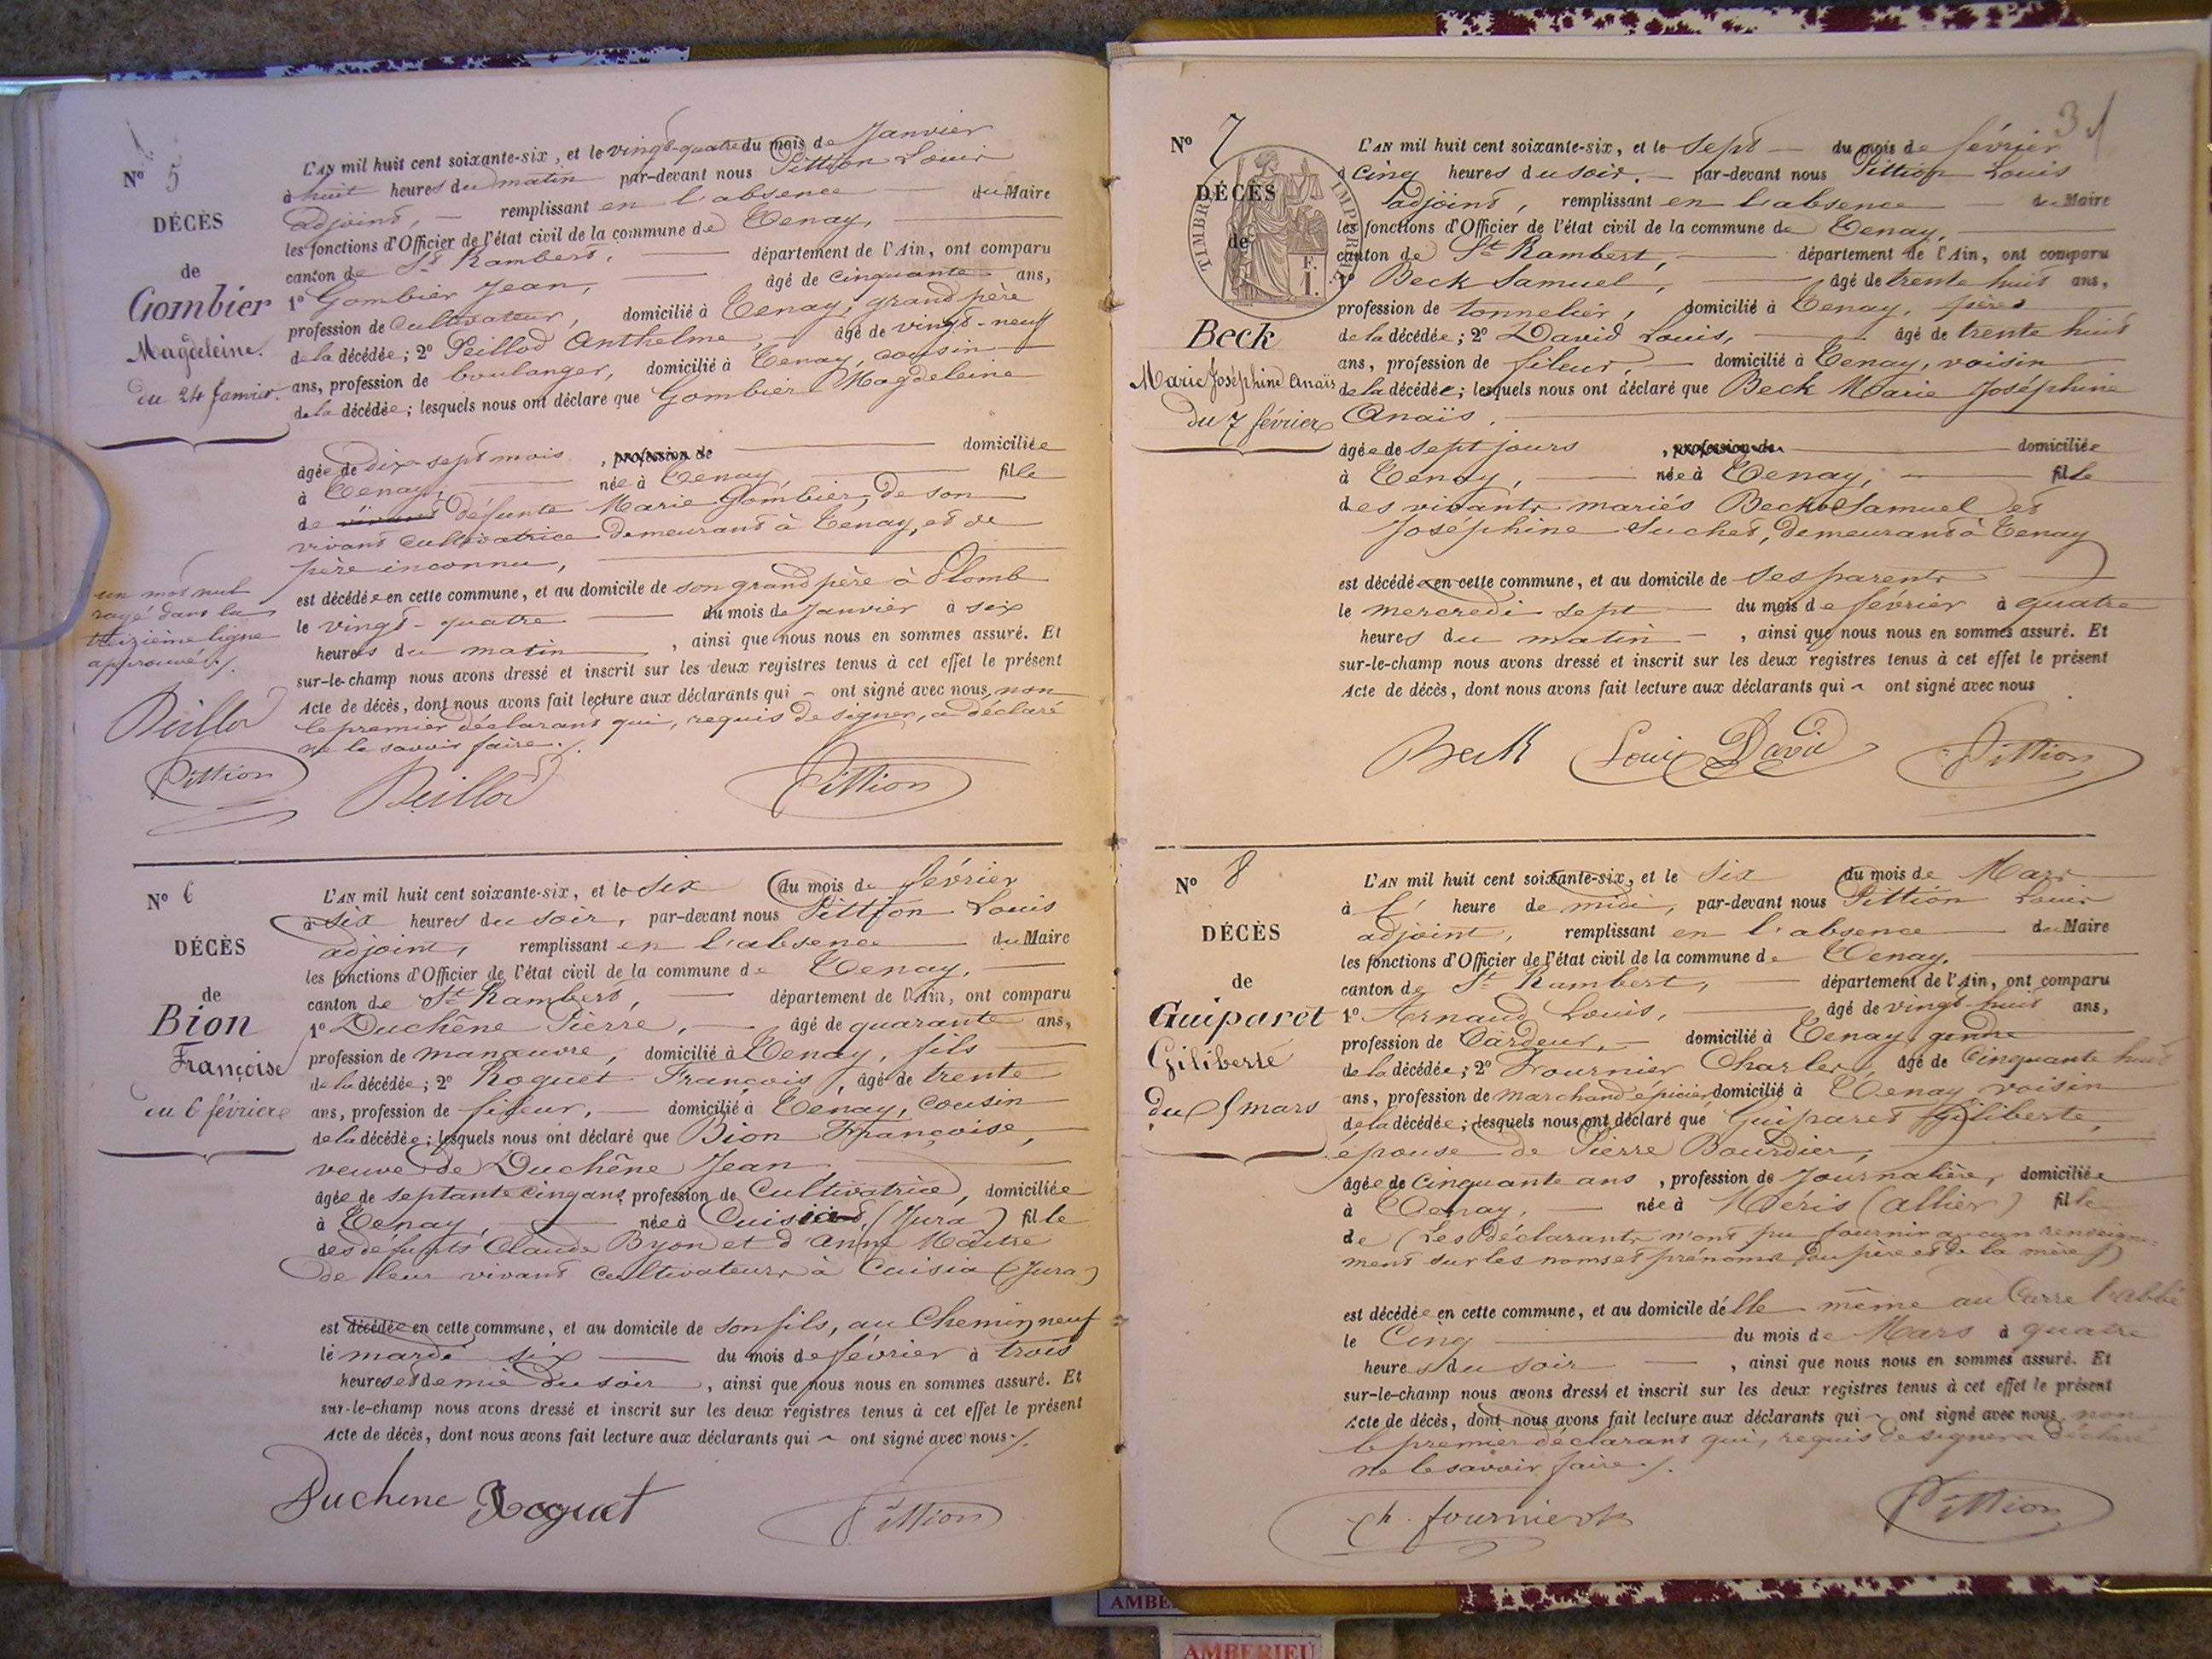 N° 5
DÉCÈS
de
Gombier
Magdeleine.
du 24 Janvier.
L'AN mil huit cent soixante-six, et le vingt-quatre du mois de Janvier
à huit heures du matin par-devant nous Pittion Louis
adjoint, remplissant en l'absence du Maire
les fonctions d'Officier de l'état civil de la commune de Tenay,
canton de St Rambert, département de l'Ain, ont comparu
1° Gombier Jean, âgé de cinquante ans,
profession de Cultivateur, domicilié à Tenay, grand père
de la décédée; 2° Peillod Anthelme, âgé de vingt-neuf
ans, profession de boulanger, domicilié à Tenay, cousin
de la décédée; lesquels nous ont déclaré que Gombier Magdeleine
âgée de dix-sept mois, profession de domiciliée
à Tenay, née à Tenay fille
de vivant défunte Marie Gombier, de son
vivant Cultivatrice demeurant à Tenay, et de
père inconnu,
est décédée en cette commune, et au domicile de son grand père à Plomb
le vingt-quatre du mois de Janvier à six
heures du matin, ainsi que nous nous en sommes assuré. Et
sur-le-champ nous avons dressé et inscrit sur les deux registres tenus à cet effet le présent
Acte de décès, dont nous avons fait lecture aux déclarants qui ont signé avec nous, non
le premier déclarant qui, requis de signer, a déclaré
ne le savoir faire./.
un mot nul
rayé dans la
treizième ligne
approuvé./.
Peillod
Pittion
Peillod Pittion
N° 6
DÉCÈS
de
Bion
Françoise
du 6 février
L'AN mil huit cent soixante-six, et le six du mois de février
à six heures du soir, par-devant nous Pittion Louis
adjoint, remplissant en l'absence du Maire
les fonctions d'Officier de l'état civil de la commune de Tenay,
canton de St Rambert, département de l'Ain, ont comparu
1° Duchêne Pierre, âgé de quarante ans,
profession de manœuvre, domicilié à Tenay, fils
de la décédée; 2° Roguet François, âgé de trente
ans, profession de fileur, domicilié à Tenay, cousin
de la décédée; lesquels nous ont déclaré que Bion Françoise,
veuve de Duchêne Jean
âgée de septante cinq ans, profession de Cultivatrice, domiciliée
à Tenay, née à Cuisiat, (Jura) fille
des défunts Claude Byon et d'Anne Maître
de leur vivant cultivateurs à Cuisia (Jura)
est décédée en cette commune, et au domicile de son fils, au Chemin neuf
le mardi six du mois de février à trois
heures et demie du soir, ainsi que nous nous en sommes assuré. Et
sur-le-champ nous avons dressé et inscrit sur les deux registres tenus à cet effet le présent
Acte de décès, dont nous avons fait lecture aux déclarants qui ont signé avec nous./.
Duchene Roguet Pittion
3
N° 7
DÉCÈS
de
TIMBRE IMPÉRIAL
F.
1.
Beck
Marie Joséphine Anaïs
du 7 février
L'AN mil huit cent soixante-six, et le sept du mois de février
à cinq heures du soir. par-devant nous Pittion Louis
adjoint, remplissant en l'absence du Maire
les fonctions d'Officier de l'état civil de la commune de Tenay,
canton de St Rambert, département de l'Ain, ont comparu
1° Beck Samuel, âgé de trente huit ans,
profession de tonnelier, domicilié à Tenay, père
de la décédée; 2° David Louis, âgé de trente huit
ans, profession de fileur, domicilié à Tenay, voisin
de la décédée; lesquels nous ont déclaré que Beck Marie Joséphine
Anaïs.
âgée de sept jours, profession de domiciliée
à Tenay, née à Tenay, fille
des vivants mariés Beck Samuel et
Joséphine Suchet, demeurant à Tenay
est décédée en cette commune, et au domicile de ses parents
le mercredi sept du mois de février à quatre
heures du matin, ainsi que nous nous en sommes assuré. Et
sur-le-champ nous avons dressé et inscrit sur les deux registres tenus à cet effet le présent
Acte de décès, dont nous avons fait lecture aux déclarants qui ont signé avec nous
Beck Louis David Pittion
N° 8
DÉCÈS
de
Guiparet
Giliberte
du 5 mars
L'AN mil huit cent soixante-six, et le six du mois de Mars
à l' heure de midi, par-devant nous Pittion Louis
adjoint, remplissant en l'absence du Maire
les fonctions d'Officier de l'état civil de la commune de Tenay,
canton de St Rambert, département de l'Ain, ont comparu
1° Arnaud Louis, âgé de vingt huit ans,
profession de Cardeur, domicilié à Tenay, gendre
de la décédée; 2° Fournier Charles, âgé de Cinquante huit
ans, profession de marchand épicier, domicilié à Tenay voisin
de la décédée; lesquels nous ont déclaré que Guiparet Giliberte,
épouse de Pierre Bourdier,
âgée de Cinquante ans, profession de Journalière, domiciliée
à Tenay, née à Néris (Allier) fille
de (Les déclarants n'ont pu fournir aucun renseigne-
ment sur les noms et prénoms du père et de la mère)
est décédée en cette commune, et au domicile d'elle même au Carre l'abbé
le Cinq du mois de Mars à quatre
heures du soir, ainsi que nous nous en sommes assuré. Et
sur-le-champ nous avons dressé et inscrit sur les deux registres tenus à cet effet le présent
Acte de décès, dont nous avons fait lecture aux déclarants qui ont signé avec nous, non
le premier déclarant qui, requis de signer a déclaré
ne le savoir faire./.
Ch. fournier Pittion
AMBE
AMBERIEU